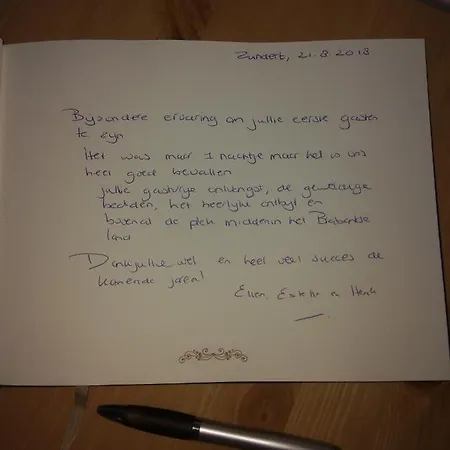 Zundert, 21.8.2018
Bijzondere ervaring om jullie eerste gasten
te zijn
Het was maar 1 nachtje maar het is ons
heel goed bevallen
jullie gastvrije ontvangst, de geweldige
bedden, het heerlijke ontbijt en
bovenal de plek middenin het Brabantse
land
Dank jullie wel en heel veel succes de
komende jaren!
Ellen, en Henk